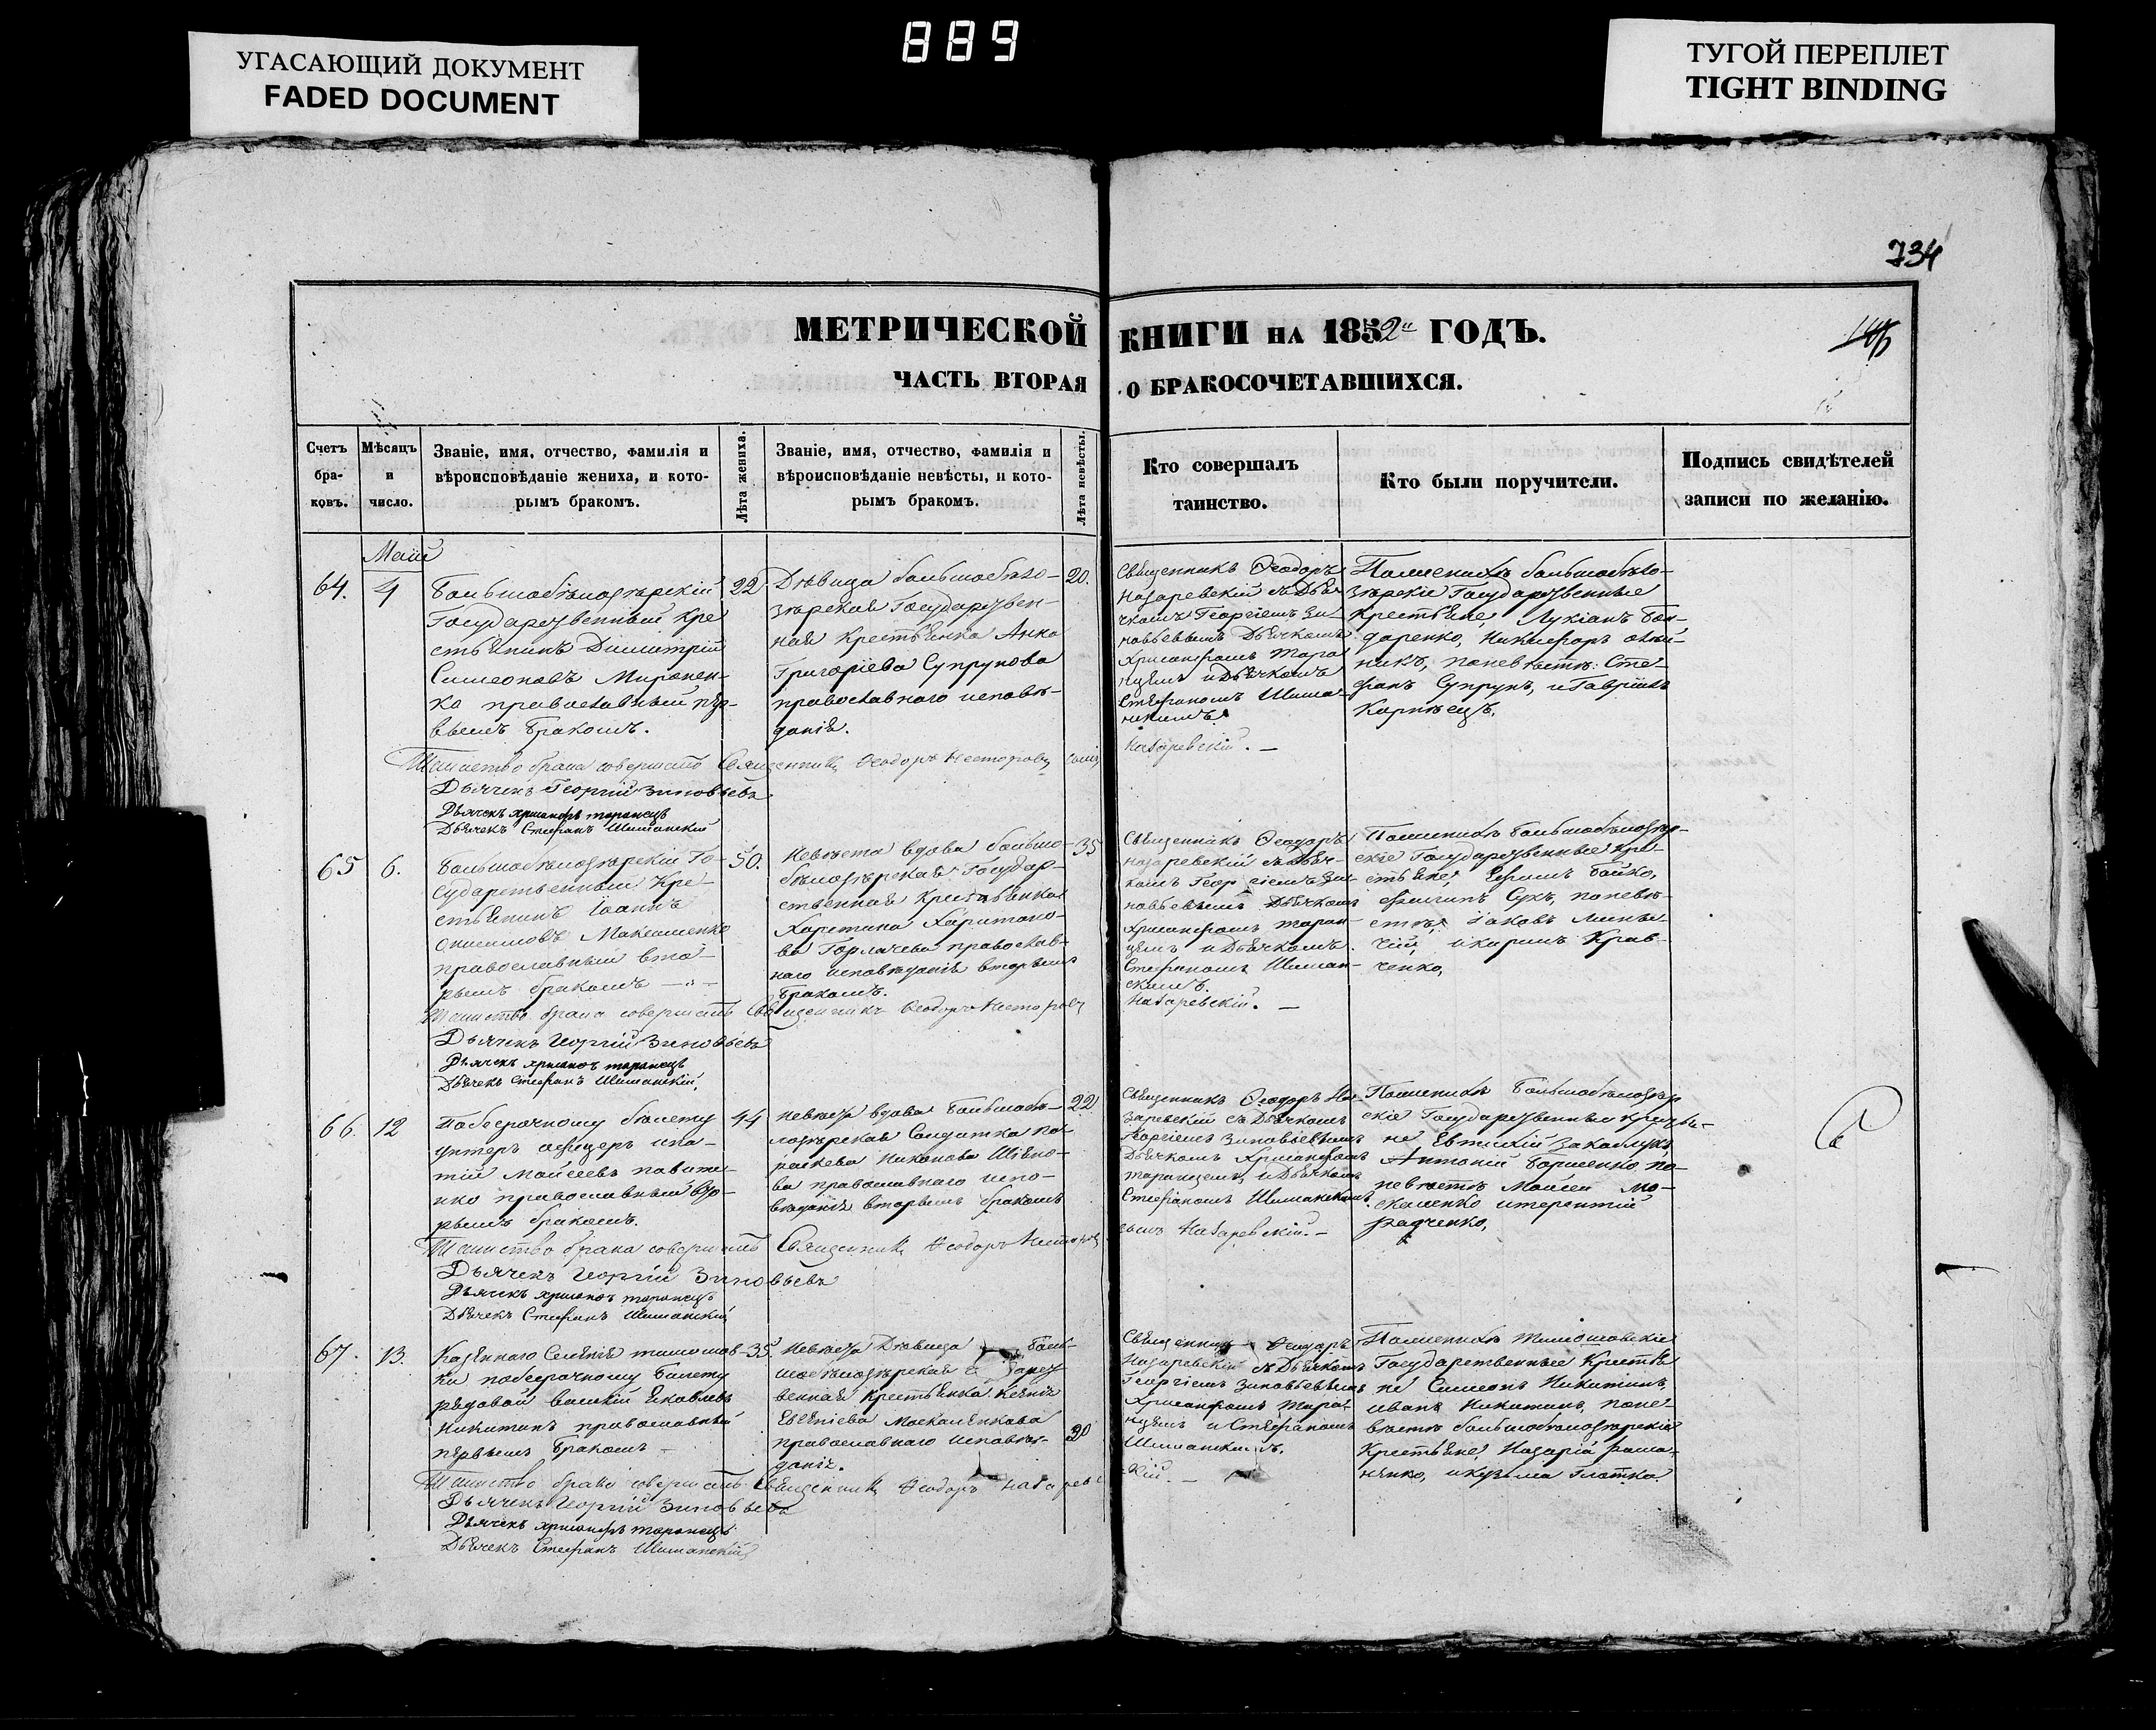 889
УГАСАЮЩИЙ ДОКУМЕНТ
FADED DOCUMENT
ТУГОЙ ПЕРЕПЛЕТ
TIGHT BINDING
734
МЕТРИЧЕСКОЙ КНИГИ НА 1852 ГОДЪ.
ЧАСТЬ ВТОРАЯ О БРАКОСОЧЕТАВШИХСЯ.
Счетъ
бра-
ковъ.
Мѣсяцъ
и
число.
Званіе, имя, отчество, фамилія и
вѣроисповѣданіе жениха, и кото-
рымъ бракомъ.
Лѣта жениха.
Званіе, имя, отчество, фамилія и
вѣроисповѣданіе невѣсты, и кото-
рымъ бракомъ.
Лѣта невѣсты.
Кто совершалъ
таинство.
Кто были поручители.
Подпись свидѣтелей
записи по желанію.
Май
64.
4
Большобѣлозѣрскій
Государственный Кре
стьянинъ Димитрій
Симеоновъ Миронен-
ко православный пер-
вымъ бракомъ.
22
Дѣвица большобѣло-
зѣрская Государствен-
ная крестьянка Анна
Григоріева Супрунова
православнаго исповѣ-
данія.
20.
Священникъ Ѳеодоръ
Назаревскій съ Дьяч
комъ Георгіемъ Зи-
новьевымъ Дьячкомъ
Хрисанфомъ Тара
нцемъ и Дьячкомъ
Стефаномъ Шиман-
скимъ
По женихѣ большобѣло-
зѣрскіе Государственные
крестьяне Лукіанъ Бон-
даренко, Никифоръ Олей-
никъ, по невѣстѣ: Сте-
фанъ Супрунъ, и Гавріилъ
Корнѣецъ.
Таинство брака совершалъ Священникъ Ѳеодоръ Назаревскій. —
Дьячекъ Георгій Зиновьевъ
Дьячекъ Хрисанфъ Таранецъ
Дьячекъ Стефанъ Шиманскій
65
6.
Большобѣлозѣрскій Го-
сударственный Кре-
стьянинъ Іоаннъ
Онисимовъ Максименко
православный вто-
рымъ бракомъ
50.
Невѣста вдова больше-
бѣлозѣрская Государ-
ственная крестьянка
Харитина Харитоно-
ва Горлачева православ-
наго исповѣданія вторымъ
бракомъ.
35
Священникъ Ѳеодоръ
Назаревскій съ Дьяч-
комъ Георгіемъ Зи-
новьевымъ Дьячкомъ
Хрисанфомъ Таран-
цемъ и Дьячкомъ
Стефаномъ Шиман-
скимъ.
По женихѣ Большобѣлозѣр-
скіе Государственные кре-
стьяне, Ефимъ Бойко,
Филипъ Сухъ, по невѣ-
стѣ, Іаковъ
и Кирилъ Крав-
ченко,
Таинство брака совершалъ Священникъ Ѳеодоръ Назаревскій. —
Дьячекъ Георгій Зиновьевъ
Дьячекъ Хрисанфъ Таранецъ
Дьячекъ Стефанъ Шиманскій
66.
12
По безсрочному билету
унтеръ офицеръ Ипа-
тій Мойсеевъ
православный вто-
рымъ бракомъ.
44
Невѣста вдова Большебѣ-
лозѣрская Солдатка Па-
раскева Никонова
православнаго испо-
вѣданія вторымъ бракомъ
22
Священникъ Ѳеодоръ На-
заревскій съ Дьячкомъ
Георгіемъ Зиновьевымъ
Дьячкомъ Хрисанфомъ
Таранцемъ, и Дьячкомъ
Стефаномъ Шиманскимъ.
По женихѣ Большобѣлозѣр
скіе Государственные крестья-
не Евтихій Закаблукъ,
Антоній Борщенко, по
невѣстѣ Мойсей Мо-
скаленко и Терентій
Радченко,
Таинство брака совершалъ Священникъ Ѳеодоръ Назаревскій. —
Дьячекъ Георгій Зиновьевъ
Дьячекъ Хрисанфъ Таранецъ
Дьячекъ Стефанъ Шиманскій
67.
13.
Казеннаго Селенія Тимошов-
ки по безсрочному билету
рядовой Василій Яковлевъ
Никитинъ православный
первымъ бракомъ —
35
Невѣста Дѣвица Боль-
шобѣлозѣрская
венная Крестьянка Ксенія
Евгеніева Москаленкова
православнаго исповѣ-
данія.
20
Священникъ Ѳеодоръ
Назаревскій съ Дьячкомъ
Георгіемъ Зиновьевымъ
Хрисанфомъ Тара-
нцемъ и Стефаномъ
Шиманскимъ.
По женихѣ Тимошовскіе
Государственные Крестья
не Симеонъ Никитинъ,
Иванъ Никитинъ, по не-
вѣстѣ большобѣлозѣрскіе
Крестьяне, Назарій Рома-
ненко, и Кузьма Глотка
Таинство брака совершалъ Священникъ Ѳеодоръ Назаревскій. —
Дьячекъ Георгій Зиновьевъ
Дьячекъ Хрисанфъ Таранецъ
Дьячекъ Стефанъ Шиманскій